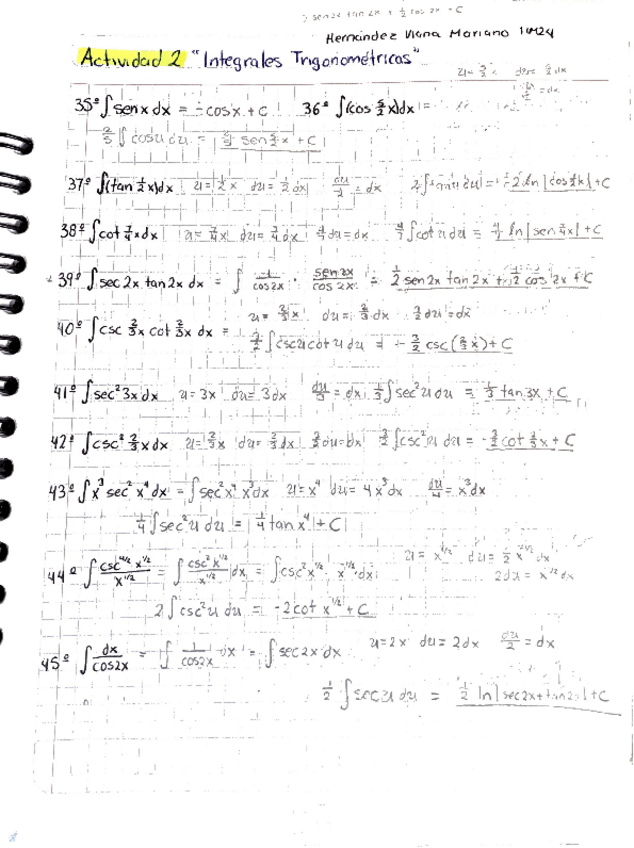 sen2x tan 2x + 1/2 cos 2x + C
Hernández Viana Mariano 1M24
Actividad 2 "Integrales Trigonométricas"
u = 5/2 x du = 5/2 dx
35º ∫senx dx = -cosx + C 36º ∫(cos 5/2 x)dx =
2/5 ∫cosu du = 2/5 sen 5/2 x + C
37º ∫(tan 1/2 x)dx u = 1/2 x du = 1/2 dx du/2 = dx 2∫ du = -2 ln|cos 1/2 x| + C
38º ∫cot 7/4 x dx u = 7/4 x du = 7/4 dx 4/7 du = dx 4/7 ∫cot u du = 4/7 ln|sen 7/4 x| + C
39º ∫sec 2x tan 2x dx = ∫ 1/cos2x · sen2x/cos 2x = 1/2 sen 2x tan 2x + 1/2 cos 2x + C
u = 2/3 x du = 2/3 dx 3/2 du = dx
40º ∫csc 2/3 x cot 2/3 x dx = 3/2 ∫cscu cot u du = -3/2 csc(2/3 x) + C
41º ∫sec² 3x dx u = 3x du = 3dx du/3 = dx 1/3 ∫sec² u du = 1/3 tan 3x + C
42º ∫csc² 2/3 x dx u = 2/3 x du = 2/3 dx 3/2 du = dx 3/2 ∫csc² u du = -3/2 cot 2/3 x + C
43º ∫x³ sec² x⁴ dx = ∫sec² x⁴ x³ dx u = x⁴ du = 4x³ dx du/4 = x³ dx
1/4 ∫sec² u du = 1/4 tan x⁴ + C
u = x^1/2 du = 1/2 x^-1/2 dx
44º ∫ csc^4/2 x^1/2 / x^1/2 = ∫ csc² x^1/2 / x^1/2 dx = ∫csc² x^1/2 · x^-1/2 dx 2du = x^-1/2 dx
2∫csc² u du = -2cot x^1/2 + C
45º ∫ dx/cos2x = ∫ 1/cos2x dx = ∫sec 2x dx u = 2x du = 2dx du/2 = dx
1/2 ∫sec u du = 1/2 ln|sec2x + tan2x| + C